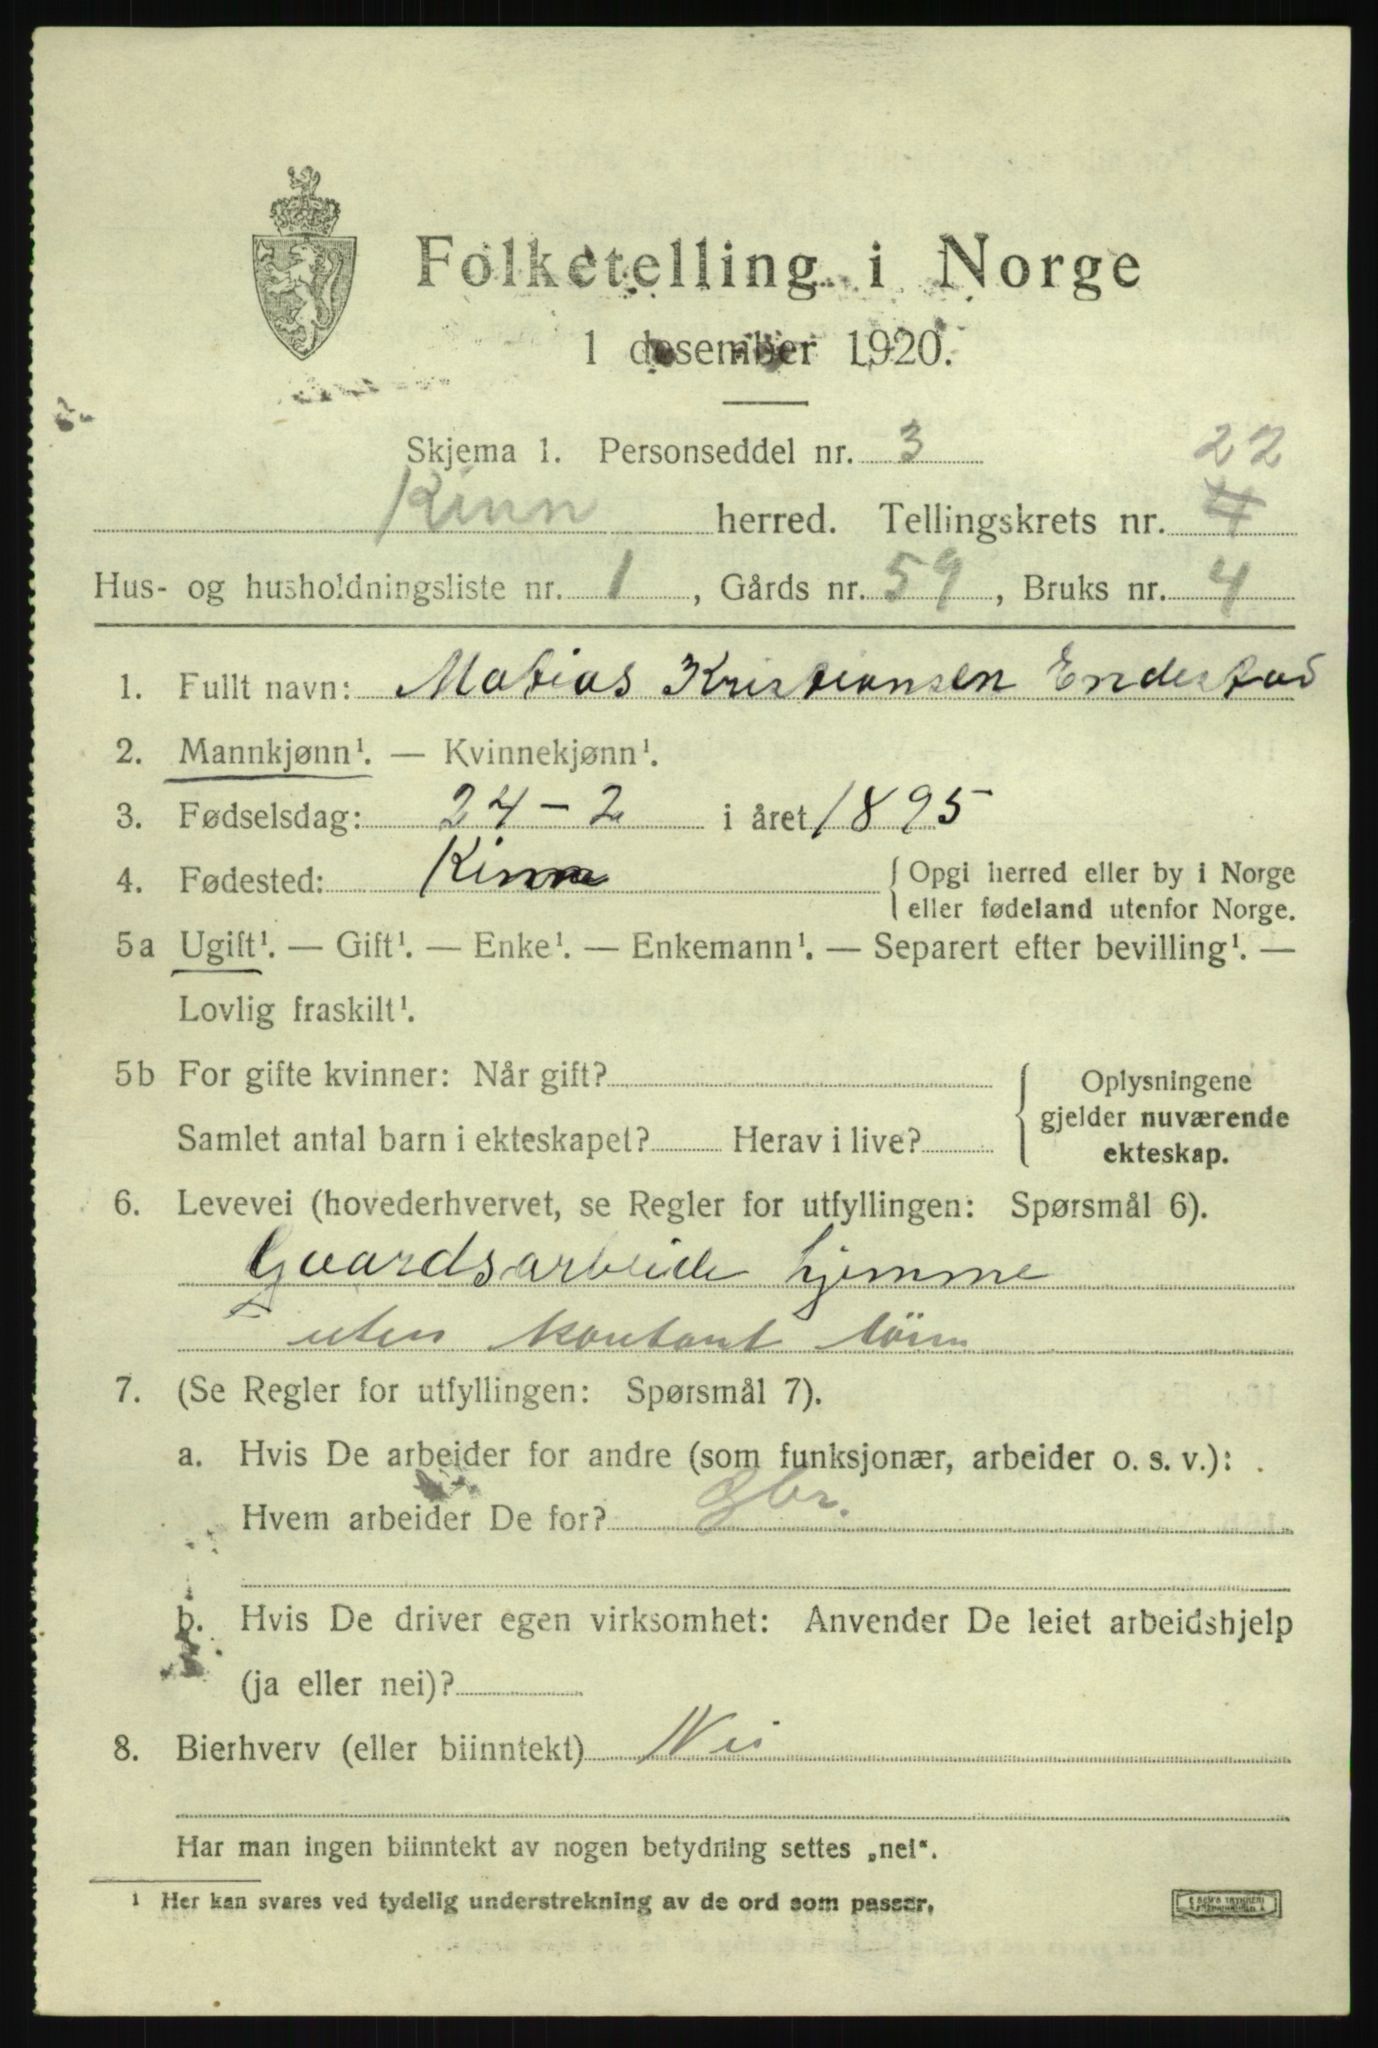 Folketelling i Norge
1 desember 1920.
Skjema 1. Personseddel nr. 3
22
Kinn herred. Tellingskrets nr. 4
Hus- og husholdningsliste nr. 1, Gårds nr. 59, Bruks nr. 4
1. Fullt navn: Matias Kristiansen Endestad
2. Mannkjønn¹. — Kvinnekjønn¹.
3. Fødselsdag: 24 - 2 i året 1895
4. Fødested: Kinn { Opgi herred eller by i Norge
eller fødeland utenfor Norge.
5a Ugift¹. — Gift¹. — Enke¹. — Enkemann¹. — Separert efter bevilling¹. —
Lovlig fraskilt¹.
5b For gifte kvinner: Når gift?
Samlet antal barn i ekteskapet? Herav i live?
{ Oplysningene
gjelder nuværende
ekteskap.
6. Levevei (hovederhvervet, se Regler for utfyllingen: Spørsmål 6).
Gaardsarbeide hjemme
uten kontant lönn
7. (Se Regler for utfyllingen: Spørsmål 7).
a. Hvis De arbeider for andre (som funksjonær, arbeider o. s. v.):
Hvem arbeider De for? Gbr.
b. Hvis De driver egen virksomhet: Anvender De leiet arbeidshjelp
(ja eller nei)?
8. Bierhverv (eller biinntekt) Nei
Har man ingen biinntekt av nogen betydning settes „nei“.
¹ Her kan svares ved tydelig understrekning av de ord som passer.